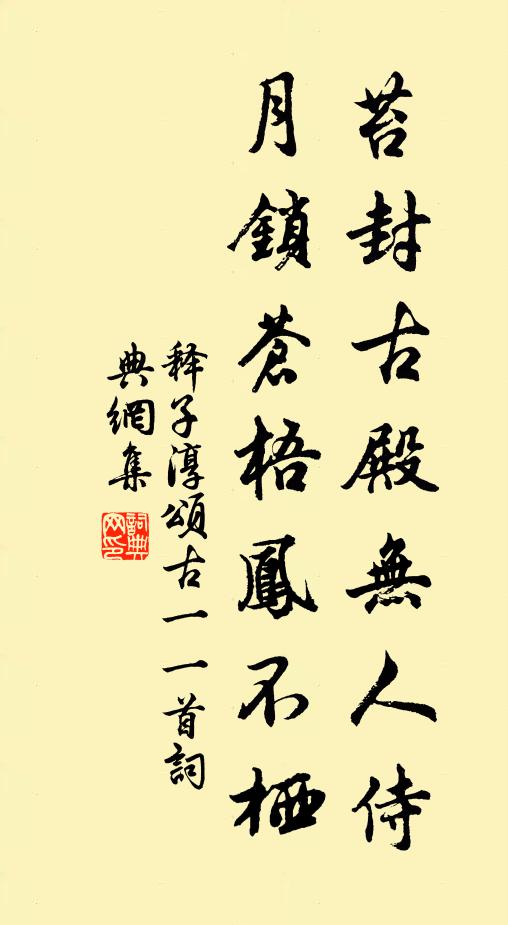 苔封古殿無人侍
月鎖蒼梧鳳不栖
释子淳頌古一一首詞
典網集
詞典
网印